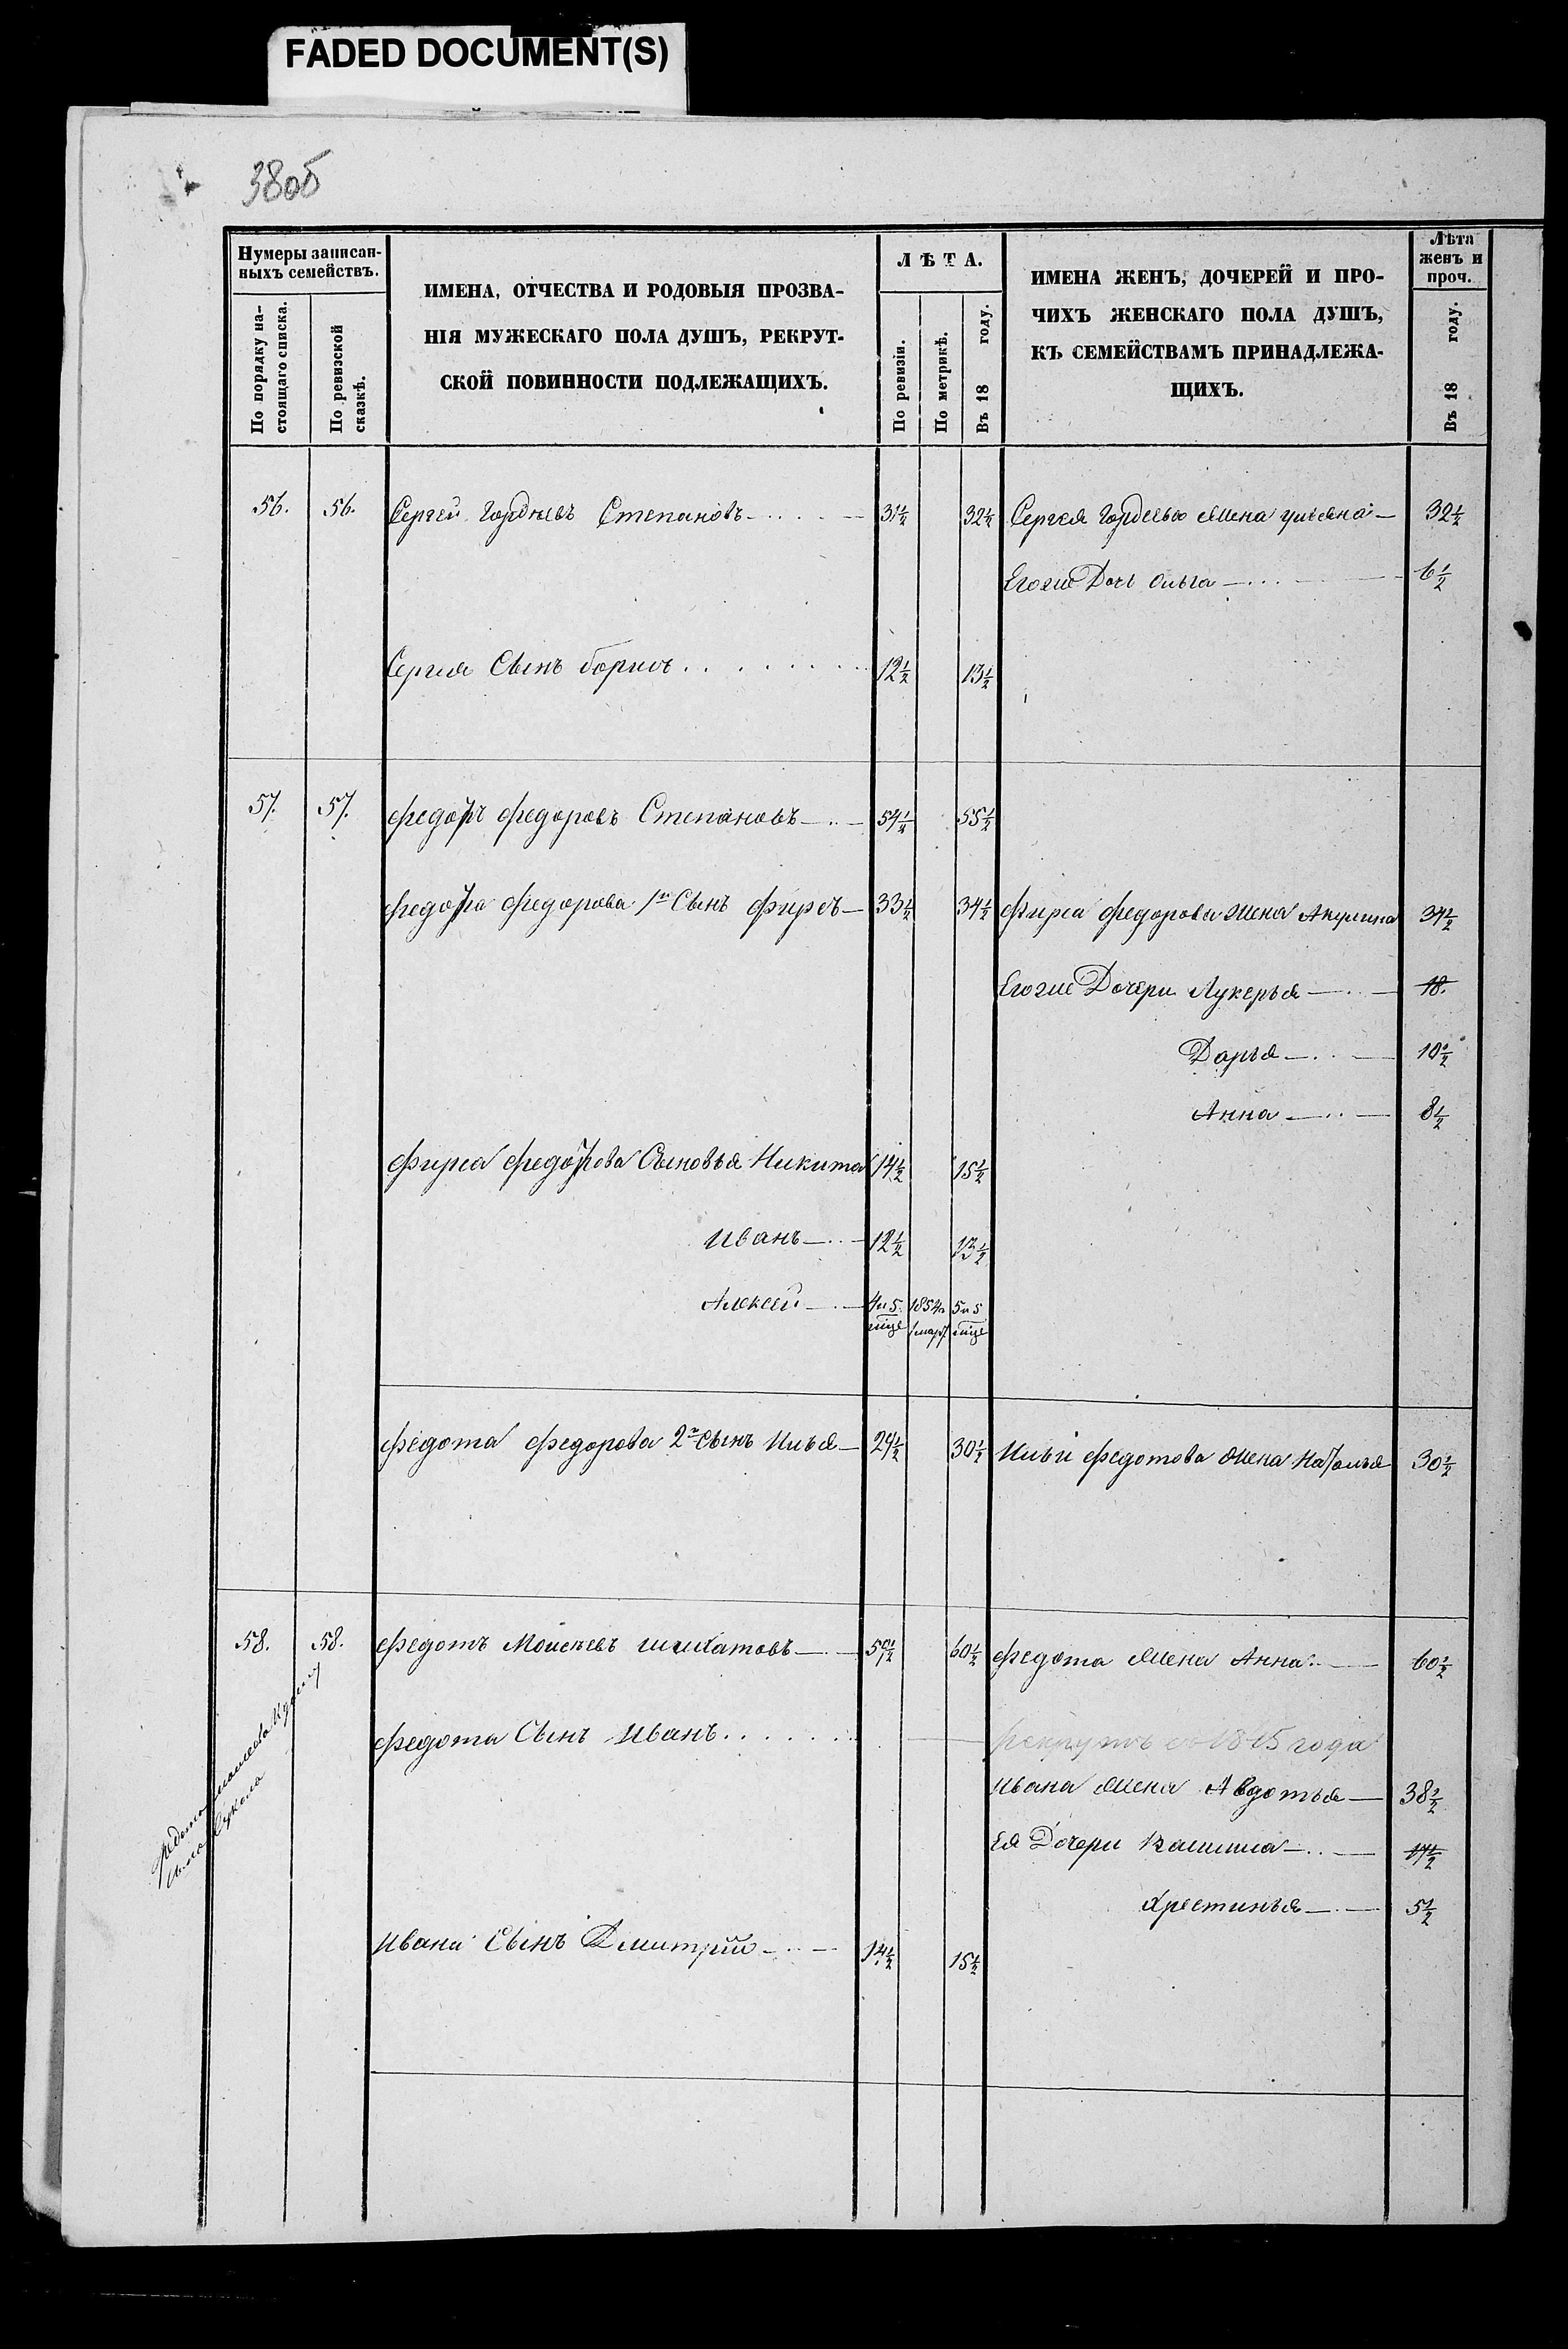 FADED DOCUMENT(S)
38об
Нумеры записан-
ныхъ семействъ.
По порядку на-
стоящаго списка.
По ревизской
сказкѣ.
ИМЕНА, ОТЧЕСТВА И РОДОВЫЯ ПРОЗВА-
НІЯ МУЖЕСКАГО ПОЛА ДУШЪ, РЕКРУТ-
СКОЙ ПОВИННОСТИ ПОДЛЕЖАЩИХЪ.
ЛѢТА.
По ревизіи.
По метрикѣ.
Въ 18 году.
ИМЕНА ЖЕНЪ, ДОЧЕРЕЙ И ПРО-
ЧИХЪ ЖЕНСКАГО ПОЛА ДУШЪ,
КЪ СЕМЕЙСТВАМЪ ПРИНАДЛЕЖА-
ЩИХЪ.
Лѣта
женъ и
проч.
Въ 18 году.
56. 56. Сергей Гордѣевъ Степановъ 31½ 32½ Сергея Гордеева жена Ульяна 32½
Егоже Дочь Ольга 6½
Сергея Сынъ Борисъ 12½ 13½
57. 57. Федоръ Федоровъ Степановъ 54½ 55½
Федора Федорова 1й Сынъ Фирсъ 33½ 34½ Фирса Федорова жена Акулина 34½
Егоже Дочери Лукерья 18.
Дарья 10½
Анна 8½
Фирса Федорова Сыновья Никита 14½ 15½
Иванъ 12½ 13½
Алексей 4и5 мѣця 1854 марта 5и5 мѣця
Федота Федорова 2й сынъ Илья 29½ 30½ Ильи Федотова жена Наталья 30½
58. 58. Федотъ Моисѣевъ 59½ 60½ Федота жена Анна 60½
Федота Сынъ Иванъ
рекрутъ года
Ивана жена Авдотья 38½
Ея Дочери 17½
Хрестинья 5½
Ивана Сынъ Дмитрій 14½ 15½
Федота Моисеева